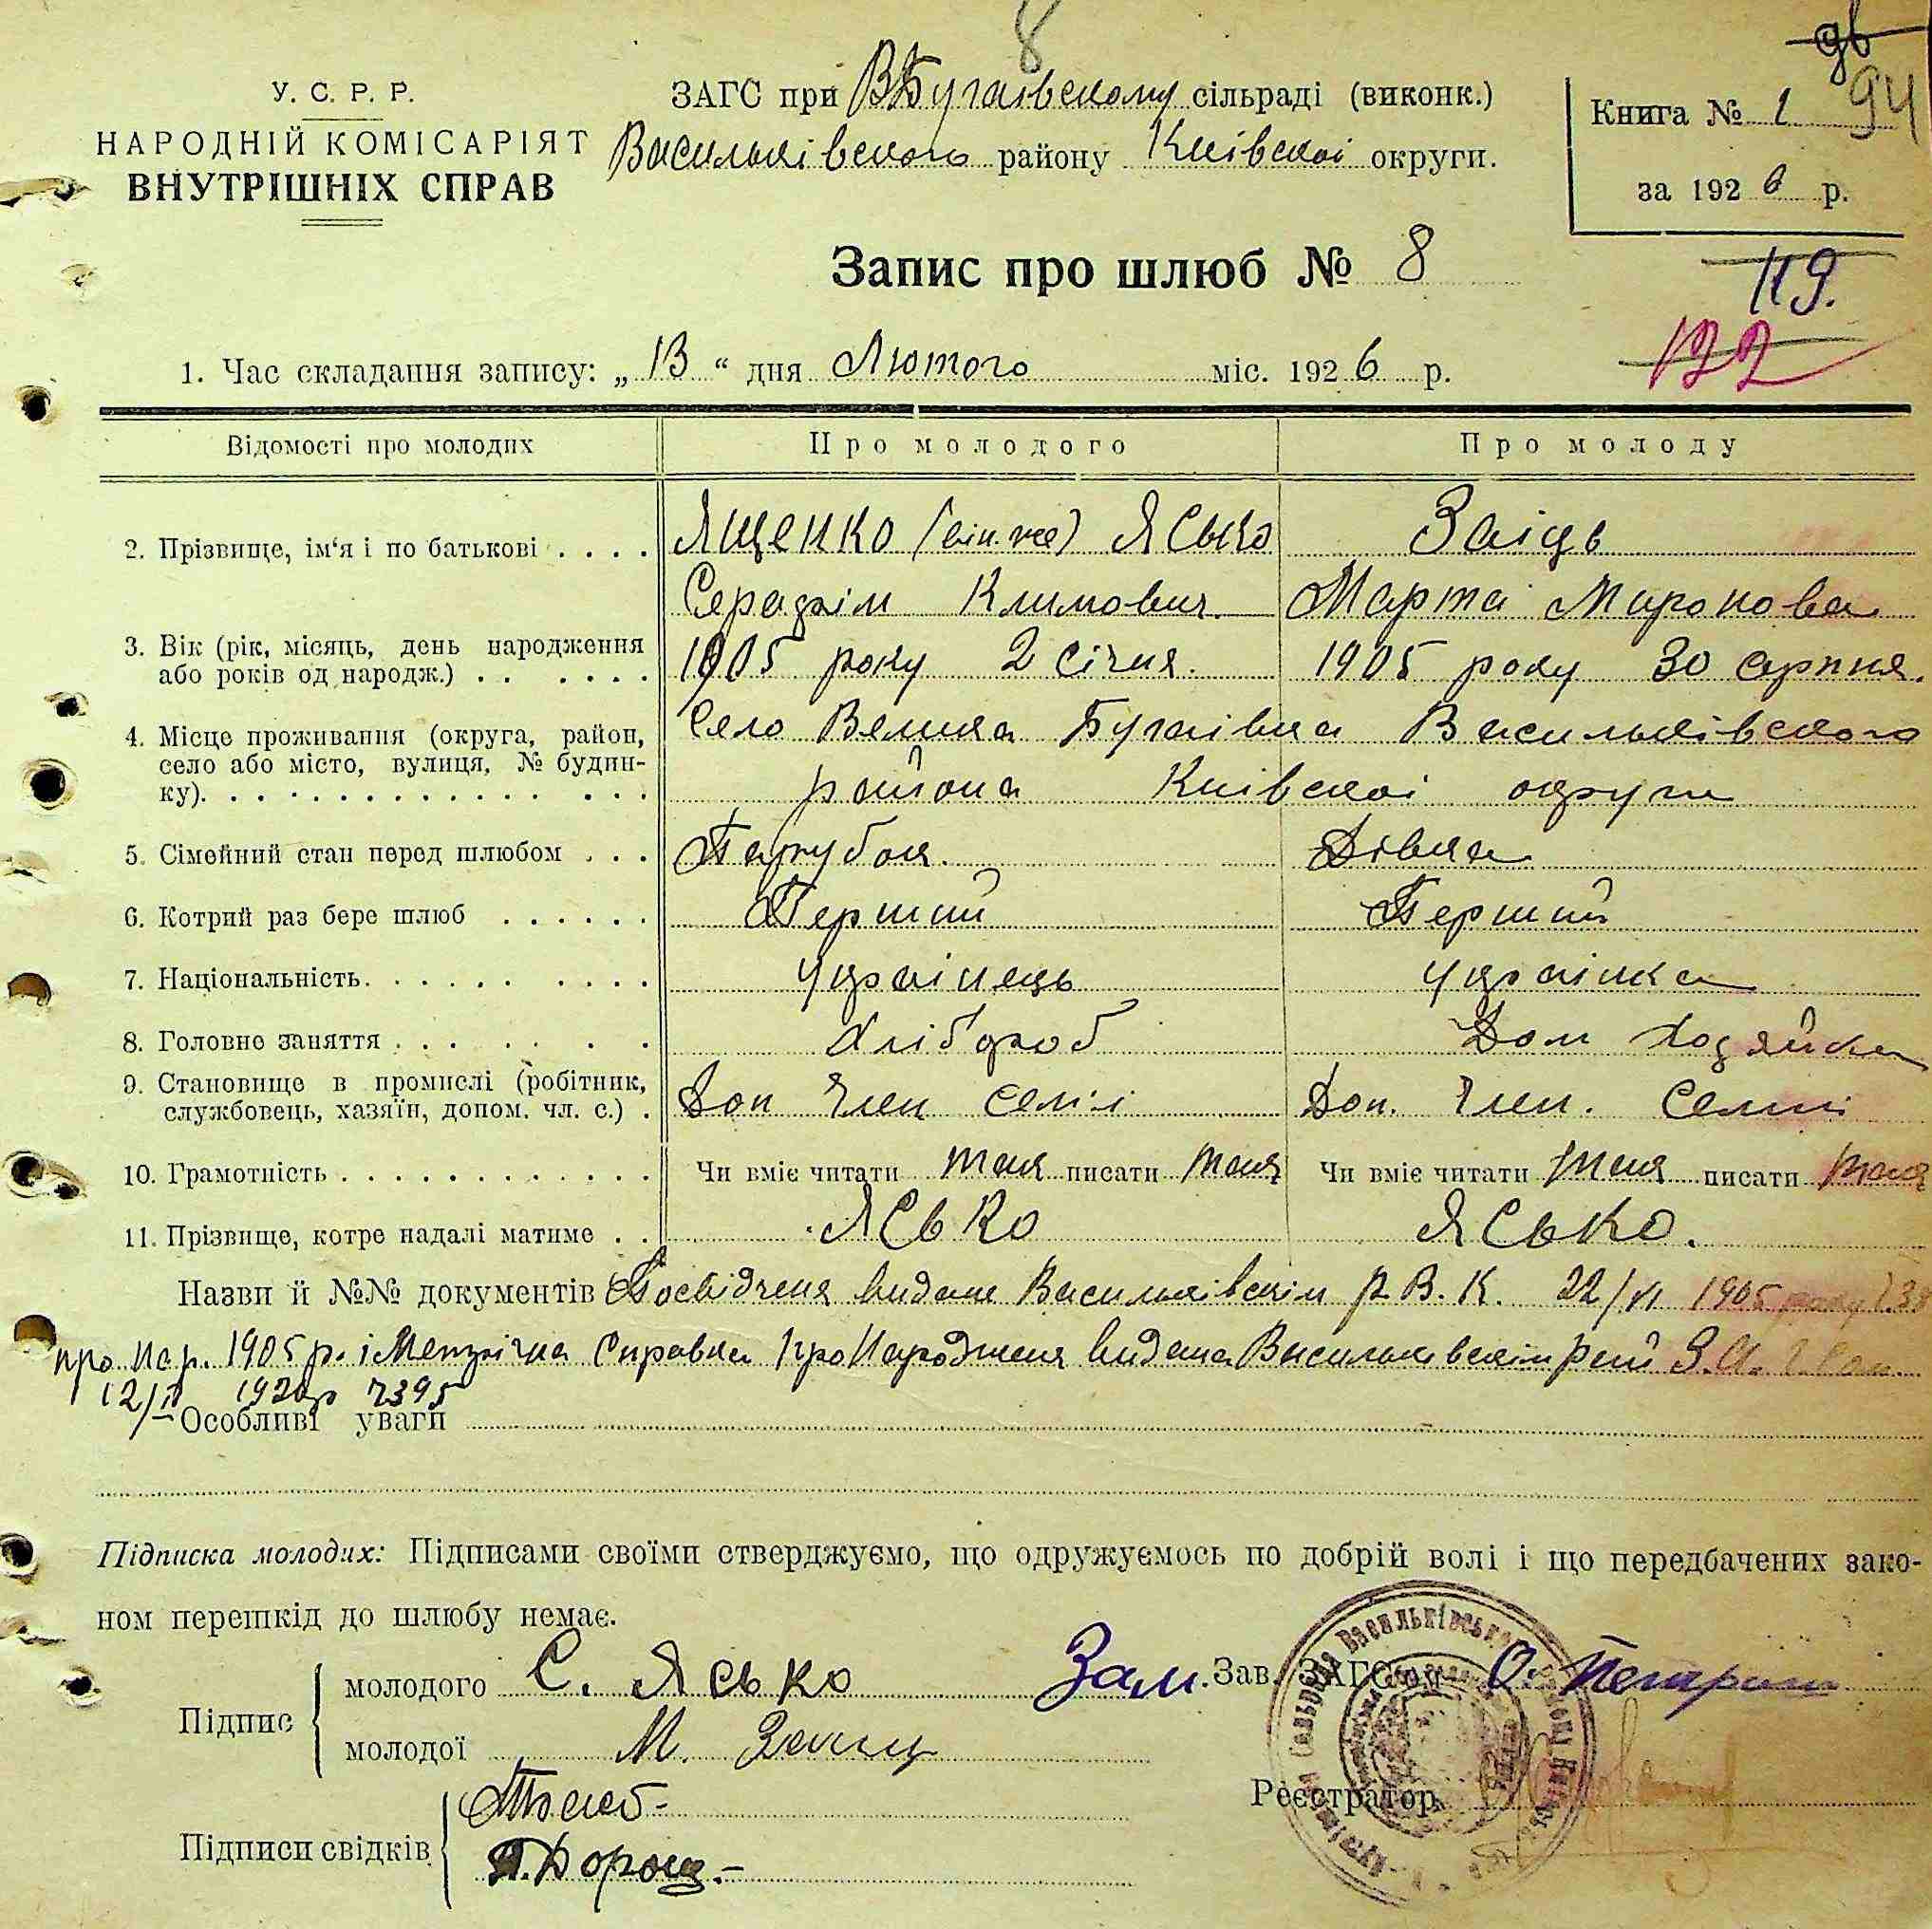 8
дв
94
У. С. Р. Р.
НАРОДНІЙ КОМІСАРІЯТ
ВНУТРІШНІХ СПРАВ
ЗАГС при ВБугаівскому сільраді (виконк.)
Васильківского району Київскоі округи.
Книга № 1
за 1926 р.
Запис про шлюб № 8
119.
122
1. Час складання запису: „ 13 “ дня Лютого міс. 1926 р.
Відомості про молодих Про молодого Про молоду
2. Прізвище, ім‘я і по батькові . . . . Ященко (він же) Ясько Заіць
Серафім Климович. Марта Миронова
3. Вік (рік, місяць, день народження 1905 року 2 січня. 1905 року 30 серпня.
або років од народж.) . . . . . .
4. Місце проживання (округа, район, Село Велика Бугаівка Васильківского
село або місто, вулиця, № будин-
ку). района Київскоі округи
5. Сімейний стан перед шлюбом . . . Парубок. Дівка
6. Котрий раз бере шлюб . . . . . . Перший Перший
7. Національність. . . . . . . . . . Украінець Украінка
8. Головне заняття . . . . . . . Хлібороб Дом Хозяйка
9. Становище в промислі (робітник, Доп Член семіі Доп. Член. Семіі
службовець, хазяїн, допом. чл. с.) .
10. Грамотність . . . . . . . . . . . . Чи вміє читати так писати так Чи вміє читати так писати так
11. Прізвище, котре надалі матиме . . Ясько Ясько.
Назви й №№ документів Посвідченя видане Васильківскім Р.В.К. 22/VI 1905 року
про нар. 1905 р. і Метрічна Справка про Народженя видана Васильківскім Рай
12/II 7395
Особливі уваги
Підписка молодих: Підписами своїми стверджуємо, що одружуємось по добрій волі і що передбачених зако-
ном перешкід до шлюбу немає.
Підпис
молодого С. Ясько
молодої М. Заиц
Зам. Зав. ЗАГСом О. Петраш
Реєстратор
Підписи свідків
П. Дорощ.-